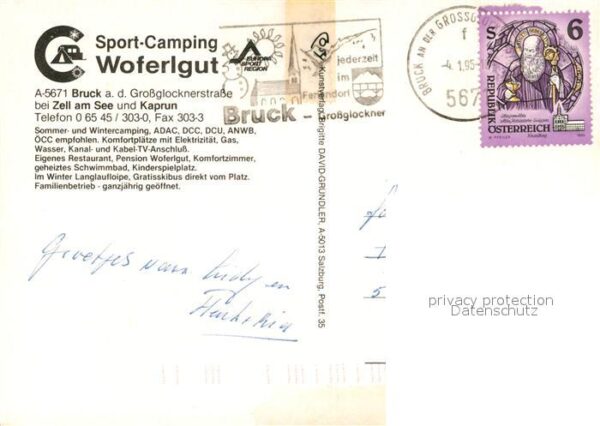 Sport-Camping
Woferlgut
A-5671 Bruck a. d. Großglocknerstraße
bei Zell am See und Kaprun
Telefon 0 65 45 / 303-0, Fax 303-3
Sommer- und Wintercamping, ADAC, DCC, DCU, ANWB,
ÖCC empfohlen. Komfortplätze mit Elektrizität, Gas,
Wasser, Kanal- und Kabel-TV-Anschluß.
Eigenes Restaurant, Pension Woferlgut, Komfortzimmer,
geheiztes Schwimmbad, Kinderspielplatz.
Im Winter Langlaufloipe, Gratisskibus direkt vom Platz.
Familienbetrieb - ganzjährig geöffnet.
EUROPA
SPORT
REGION
jederzeit
im
Feriendorf
Bruck - Großglockner
Kunstverlag Brigitte DAVID-GRUNDLER, A-5013 Salzburg, Postf. 35
BRUCK AN DER GROSSGL
f
4.1.95
567
S 6
REPUBLIK
ÖSTERREICH
Groetjes van
en
privacy protection
Datenschutz